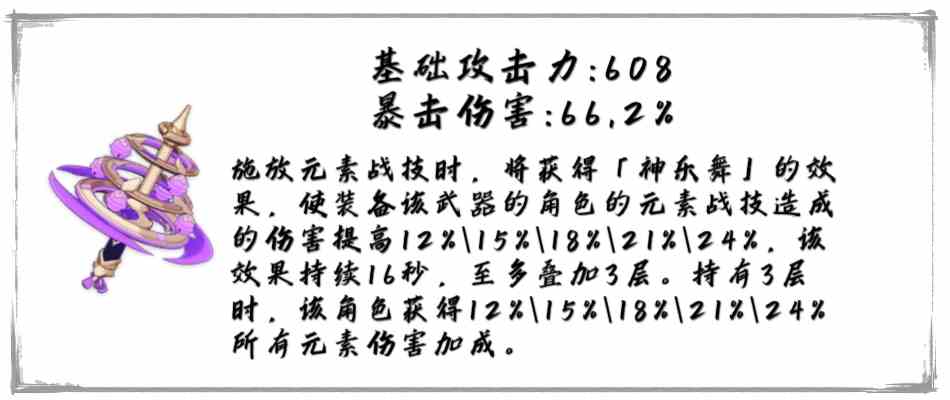 基础攻击力:608
暴击伤害:66.2%
施放元素战技时，将获得「神乐舞」的效
果，使装备该武器的角色的元素战技造成
的伤害提高12%\15%\18%\21%\24%，该
效果持续16秒，至多叠加3层。持有3层
时，该角色获得12%\15%\18%\21%\24%
所有元素伤害加成。